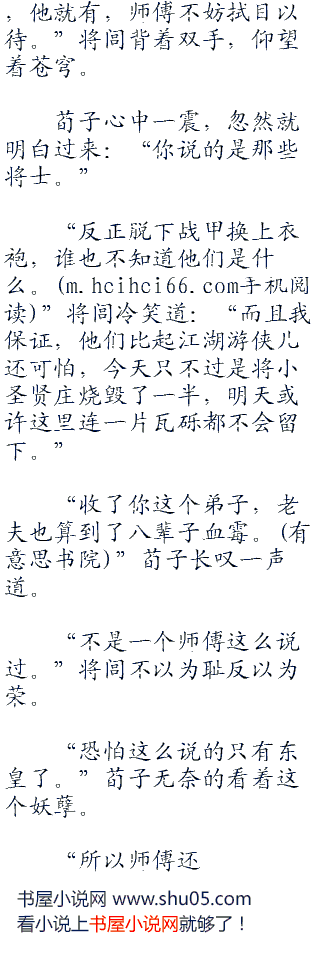 ，他就有，师傅不妨拭目以
待。”将闾背着双手，仰望
着苍穹。
荀子心中一震，忽然就
明白过来：“你说的是那些
将士。”
“反正脱下战甲换上衣
袍，谁也不知道他们是什
么。(m.hcihci66.com手机阅
读)”将闾冷笑道：“而且我
保证，他们比起江湖游侠儿
还可怕，今天只不过是将小
圣贤庄烧毁了一半，明天或
许这里连一片瓦砾都不会留
下。”
“收了你这个弟子，老
夫也算到了八辈子血霉。(有
意思书院)”荀子长叹一声
道。
“不是一个师傅这么说
过。”将闾不以为耻反以为
荣。
“恐怕这么说的只有东
皇了。”荀子无奈的看着这
个妖孽。
“所以师傅还
书屋小说网 www.shu05.com
看小说上书屋小说网就够了！